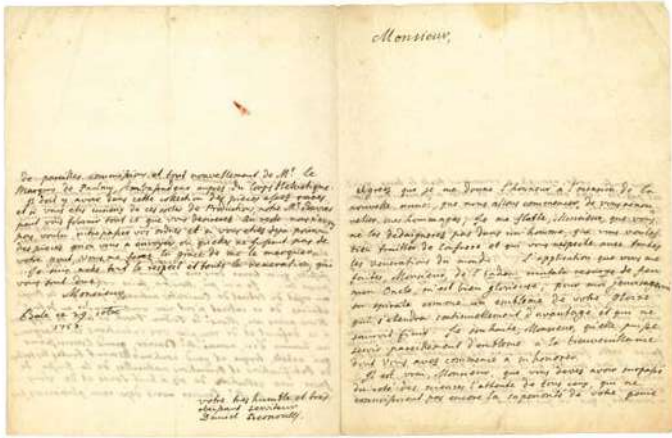 Monsieur,
Agréez que je me donne l'honneur à l'occasion de la
nouvelle année, que nous allons commencer, de vous renou-
veller mes hommages; Je me flatte, Monsieur, que vous
ne les dedaignerez pas dans un homme, que vous voulez
bien et qui vous respecte avec toutes
les venerations du monde. L'application que vous me
faites, Monsieur, de l'Eadem mutata resurgo de feu
mon Oncle, m'est bien glorieuse; pour moi
en spirale comme un embleme de votre gloire
qui s'etendra continuellement d'avantage et que ne
sauroit finir. Je souhaite, Monsieur, qu'elle puisse
servir pareillement d'embleme à la bienveillance
dont vous avez commencé à m'honorer.
Il est vrai, Monsieur, que vous devez avoir surpassé
du coté des sciences l'attente de tous ceux, qui ne
connoissoient pas encore la superiorité de votre genie
de pareilles commissions et tout nouvellement de Mr. le
Marquis de Paulmy, Ambassadeur aupres du Corps Helvetique.
Il doit y avoir dans cette collection des pieces assez rares
et si vous etes curieux de ces sortes de Productions, notre Mr.
peut vous fournir tout ce que vous desirerez. Au reste
pas voulu anticiper vos ordres et si vous etiez deja pourvu
des pieces qu'on vous a envoyées ou qu'elles ne fussent pas de
votre gout, vous me ferez la grace de me le marquer.
Je suis avec tout le respect et toute la veneration, qui
vous sont dues,
Monsieur
Basle ce 29
1753
votre tres humble et tres
obeissant serviteur
Daniel Bernoulli.